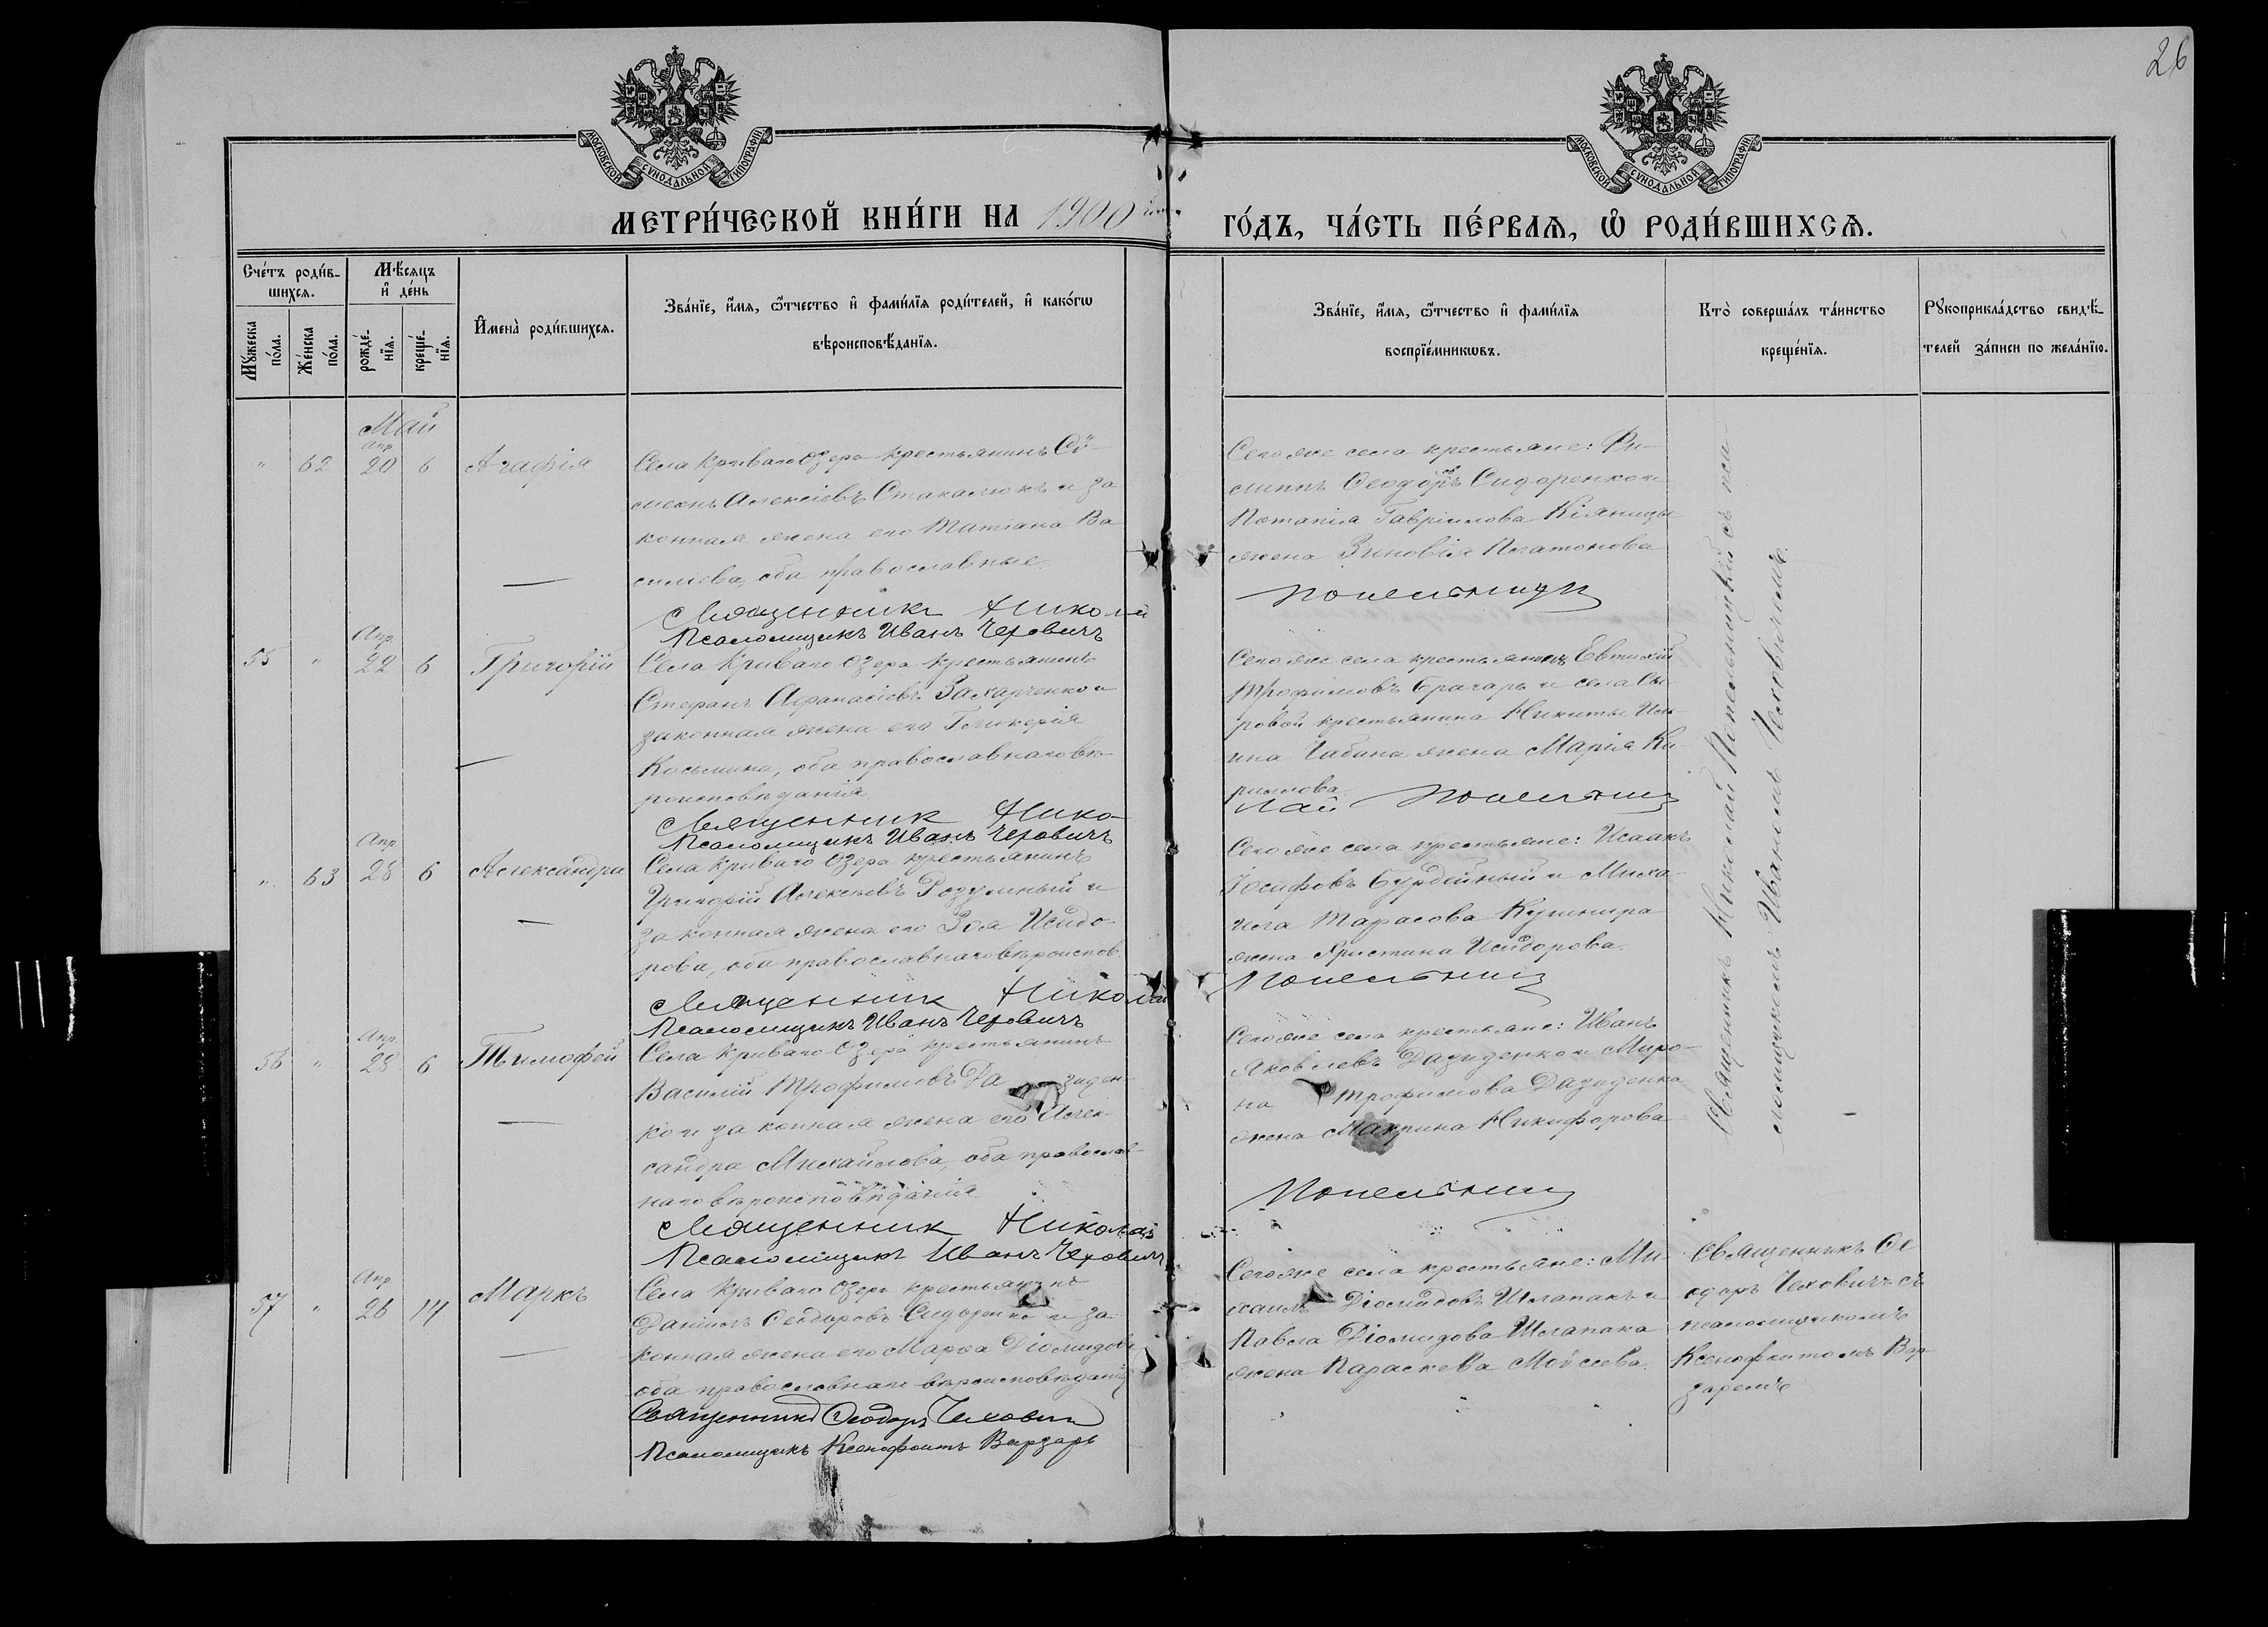 26
МОСКОВСКОЙ СѴНОДАЛЬНОЙ ТИПОГРАФІИ
МОСКОВСКОЙ СѴНОДАЛЬНОЙ ТИПОГРАФІИ
МЕТРИ́ЧЕСКОЙ КНИ́ГИ НА 1900
ГО́ДЪ, ЧА́СТЬ ПЕ́РВАѦ, Ѡ РОДИ́ВШИХСѦ.
Сче́тъ роди́в-
шихсѧ.
Мѣ́сѧцъ
и҆ де́нь
Мꙋ́жеска
по́ла.
Же́нска
по́ла.
рожде́-
нїѧ.
креще́-
нїѧ.
И҆мена̀ роди́вшихсѧ.
Зва́нїе, и҆́мѧ, ѻ҆́тчество и҆ фами́лїѧ роди́телей, и҆ како́гѡ
вѣроисповѣ́данїѧ.
Зва́нїе, и҆́мѧ, ѻ҆́тчество и҆ фами́лїѧ
воспрїе́мникѡвъ.
Кто̀ соверша́лъ та́инство
креще́нїѧ.
Рꙋкоприкла́дство свидѣ́-
телей за́писи по жела́нїю.
Май
Апр
" 62 20 6 Агафія
Села Криваго Озера крестьянинъ Си-
меонъ Алексіевъ Стакалюкъ и за
конная жена его Татіана Ва
силіева, оба православные.
Священникъ Николай
Псаломщикъ Иванъ Чеховичъ
Сего же села крестьяне: Фи-
липпъ Ѳеодоровъ Сидоренко и
Потапія Гавріилова Кіяницы
жена Зиновія Платонова
Попельницкі
Апр
55 " 22 6 Григорій
Села Криваго Озера крестьянинъ
Стефанъ Аѳанасіевъ Захарченко и
законная жена его Гликерія
Косьмина, оба православнаго вѣ-
роисповѣданія
Священник Нико
Псаломщикъ Иванъ Чеховичъ
Сего же села крестьянинъ Евтихій
Трофимовъ Брагарь и села Сы-
ровой крестьянина Никиты Иль-
ина Чабана жена Марія Ки-
риллова.
лай Попельниц
Апр
" 63 28 6 Александра
Села Криваго Озера крестьянинъ
Григорій Алексѣевъ Розумный и
законная жена его Зоя Исидо-
рова, оба православнаго вѣроисповѣ.
Священник Никола
Псаломщикъ Иванъ Чеховичъ
Сего же села крестьяне: Исаакъ
Іосифовъ Бурдейный и Миха-
ила Тарасова Кушнира
жена Христина Исидорова.
Попельниц
Апр
56 " 28 6 Тимофей
Села Криваго Озера крестьянинъ
Василій Трофимовъ Да зиден-
ко и законная жена его Алек-
сандра Михайлова, оба православ-
наго вѣроисповѣданія
Священник Николай
Псаломщикъ Иванъ Чеховичъ
Сего же села крестьяне: Иванъ
Яковлевъ Дазиденко и Миро-
на Трофимова Дазиденка
жена Макрина Никифорова
Попельниц
Священникъ Николай Попельницкій съ пса-
ломщикомъ Иваномъ Чеховичемъ.
Апр
57 " 26 14 Маркъ
Села Криваго Озера крестьянинъ
Даніилъ Ѳеодоровъ Сидоренко и за-
конная жена его Марѳа Діомидова
оба православнаго вѣроисповѣданія
Священникъ Ѳеодоръ Чехович
Псаломщикъ Ксенофонтъ Варзарь
Сего же села крестьяне: Ми-
хаилъ Діомидовъ Шлапакъ и
Павла Діомидова Шлапака
жена Параскева Моѵсеева.
Священникъ Ѳе
одоръ Чеховичъ съ
псаломщикомъ
Ксенофонтомъ Вар-
заремъ